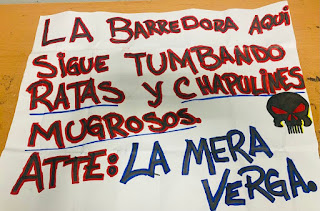 LA BARREDORA AQUI
SIGUE TUMBANDO
RATAS Y CHAPULINES
MUGROSOS.
ATTE: LA MERA
VERGA.